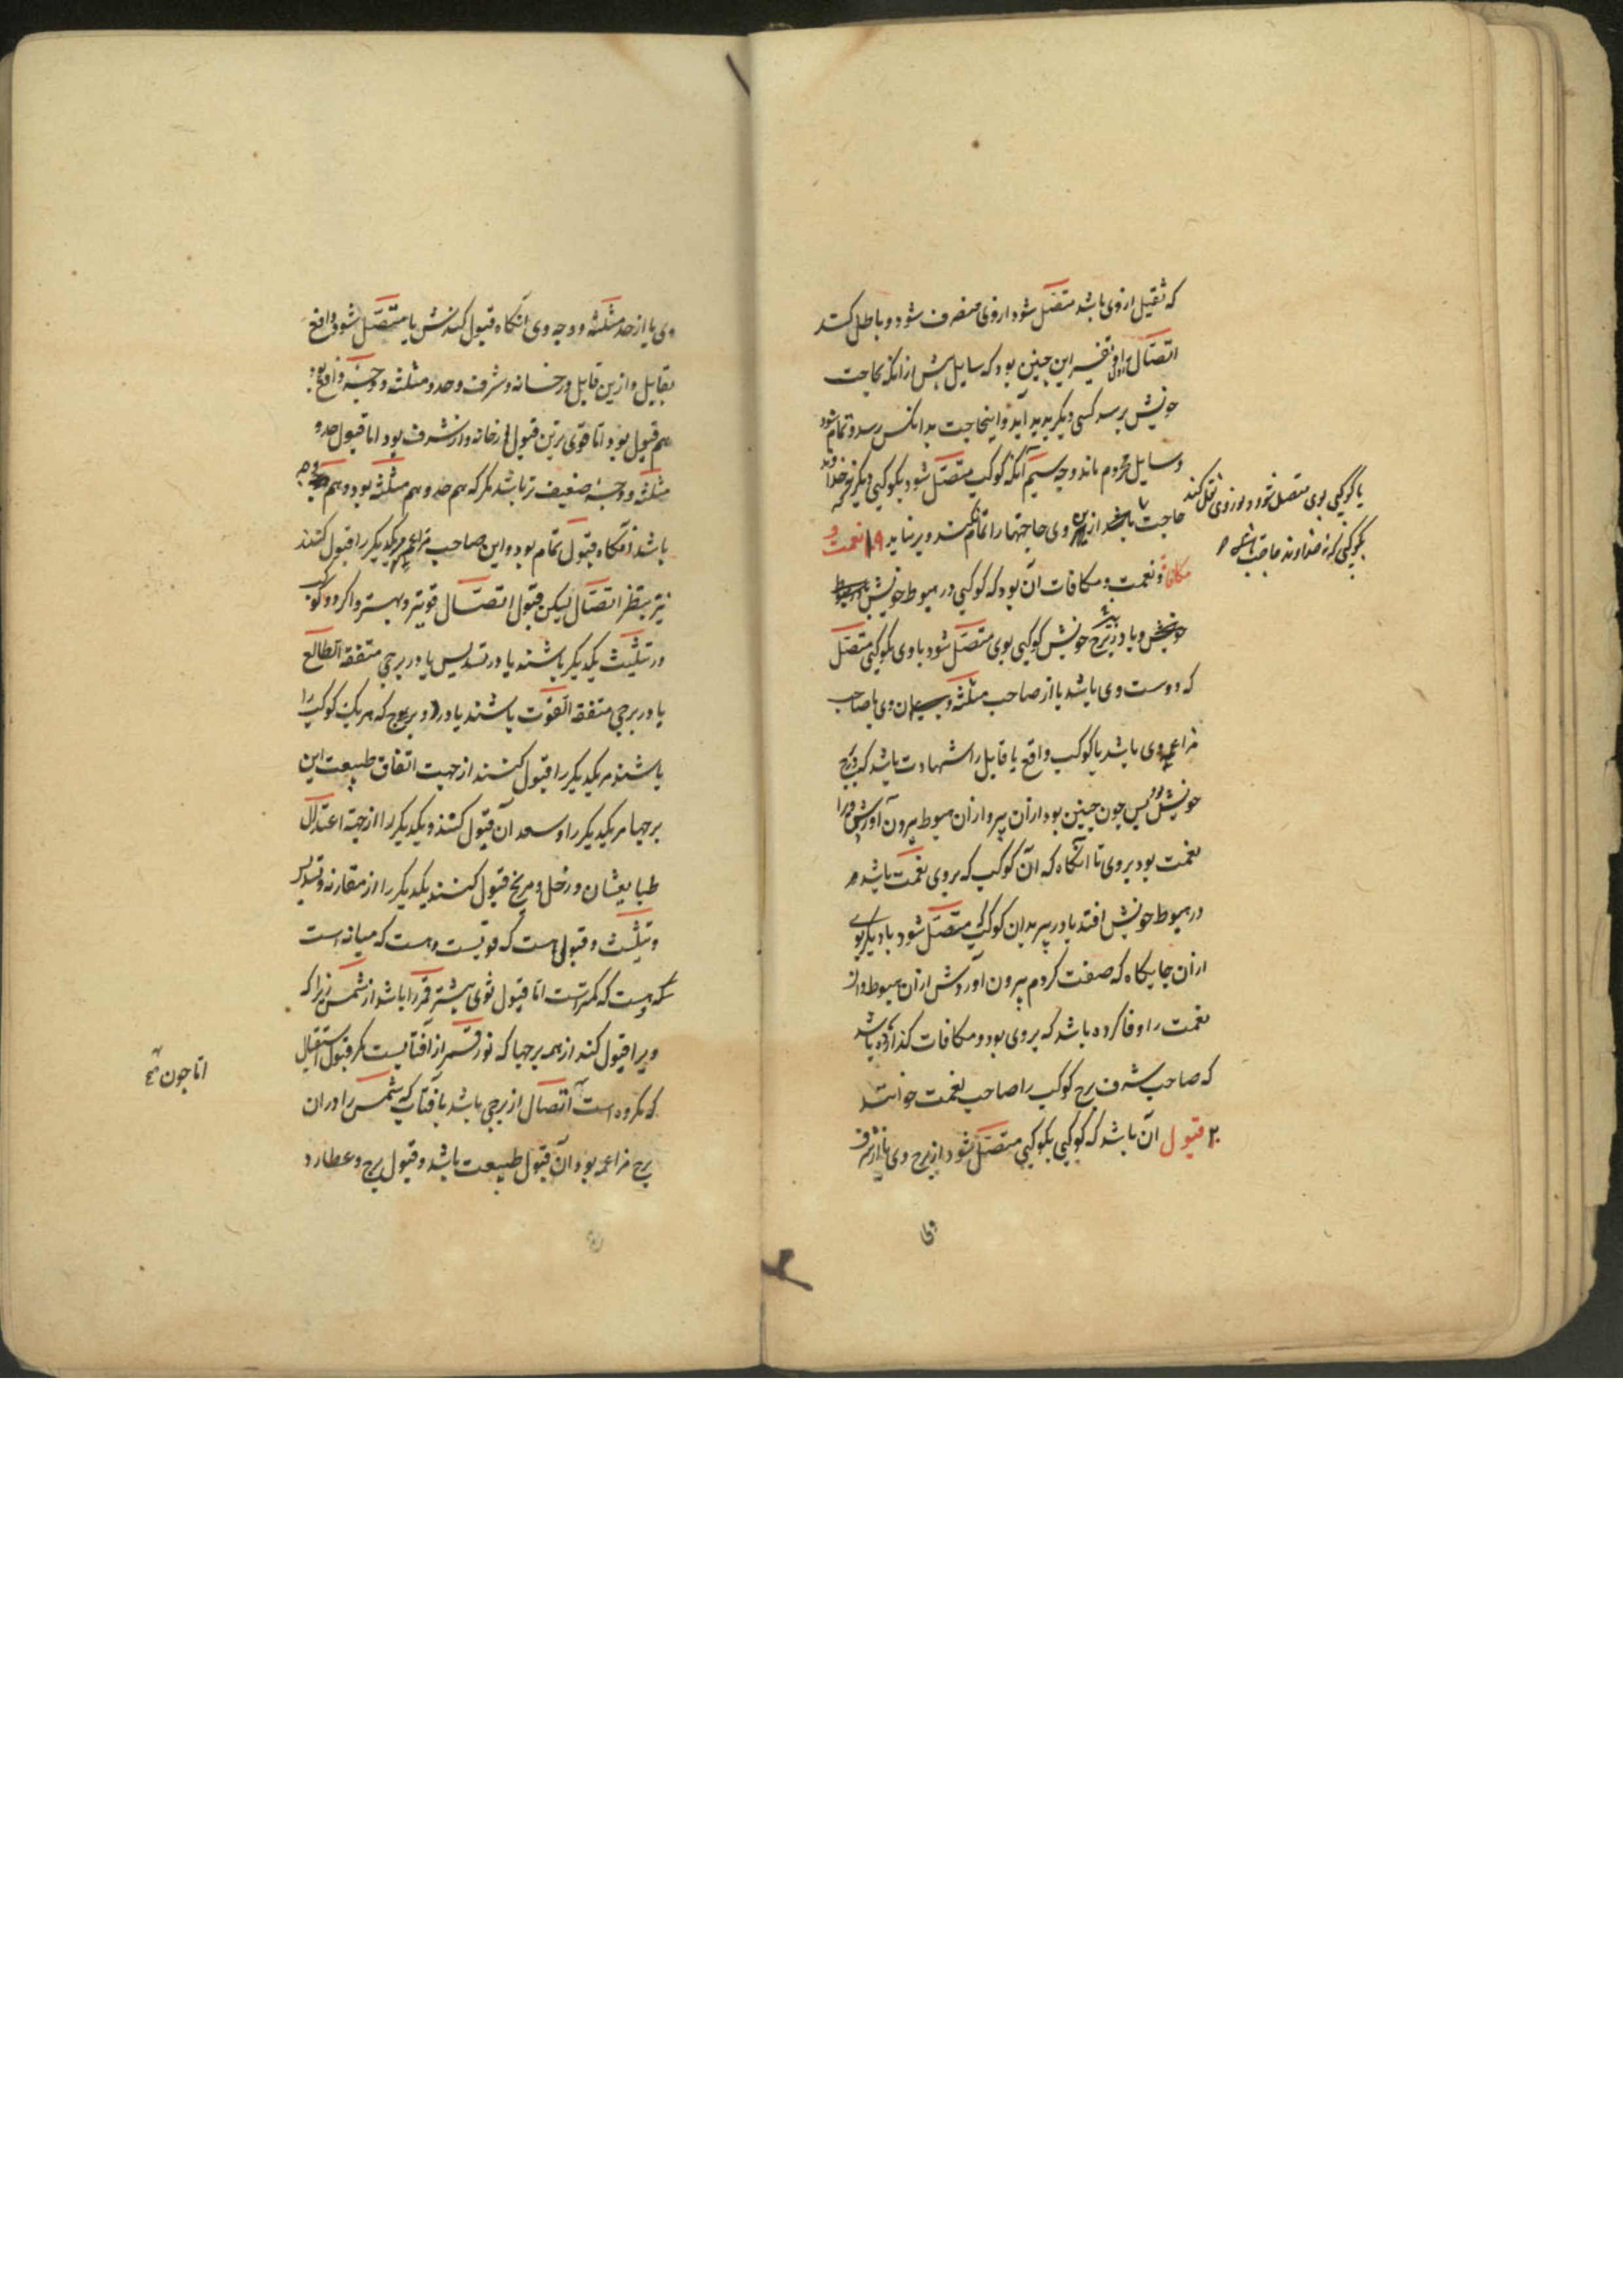 که ثقیل از وی باشد متصل شود از وی منصرف شود و باطل کند
اتصال اول و تفسیر این چنین بود که سایل پیش از انکه بحاجت
خویش برسد کسی دیکر پدید آید و اینحاجت بدانکس رسد و تمام شود
و سایل محروم ماند وجه سیم آنکه کوکب متصل شود بکوکبی دیکر نه خداوند
حاجت از وی حاجتها را تمام نکند و بر نیاید ۱۹ نعمت و
مکافات نعمت و مکافات آن بود که کوکبی در هبوط خویش
و یا در بئر برج خویش کوکبی بوی متصل شود یا وی بکوکبی متصل
که دوست وی باشد یا از صاحب مثلثه وی یا صاحب
مزاعمه وی باشد یا کوکب واقع یا قابل را شهادت باشد در برج
خویش بود پس چون چنین بود از آن بیر و از آن هبوط بیرون آوردش ویرا
نعمت بود بر وی تا آنکاه که آن کوکب که بروی نعمت باشد
در هبوط خویش افتد یا در بیر بدان کوکب متصل شود یا دیکر بوی
از آن جایکاه که صفت کردم بیرون آوردش از آن هبوط و آن
نعمت را وفا کرده باشد که بروی بود و مکافات کذارده باشد
که صاحب شرف برج کوکب را صاحب نعمت خوانند
۲۰ قبول آن باشد که کوکبی بکوکبی متصل شود از برج وی یا از شرف
یا کوکبی بوی متصل شود و نور وی نقل کند
بکوکبی که نه خداوند حاجت باشد
وی یا از حد مثلثه و وجه وی آنکاه قبول کندش یا متصل شود واقع
بقابل و ازین قابل در خانه و شرف و حد و مثلثه و وجه واقع بود
هم قبول بود اما قوی ترین قبول از خانه و از شرف بود اما قبول حد و
مثلثه و وجه ضعیف تر باشد مکر که هم حد و هم مثلثه بود و هم وجه
باشد آنکاه قبول تمام بود و این صاحب مزاعم مریکدیکر را قبول کنند
نیز بنظر اتصال لیکن قبول اتصال قویتر و بهتر و اکر دو کوکب
در تثلیث یکدیکر باشند یا در تسدیس یا در برجی متفقه الطالع
یا در برجی متفقه القوت باشند یا در دو برج که هر یک کوکب را
باشند مریکدیکر را قبول کنند از جهت اتفاق طبیعت این
برجها مریکدیکر را و سعد آن قبول کنند و یکدیکر را از جهة اعتدال
طبایعشان و زحل و مریخ قبول کنند یکدیکر را از مقارنه و تسدیس
و تثلیث و قبول هست که قویست و هست که میانه است
و هست که کمتر است اما قبول قوی بیشتر قمر را باشد از شمس زیرا که
ویرا قبول کند از همه برجها که نور قمر از آفتابست مکر قبول استقبال
که مکروه است اتصال از برجی باشد بآفتاب که شمس را در آن
برج مزاعمه بود آن قبول طبیعت باشد و قبول برج و عطارد
اما چون